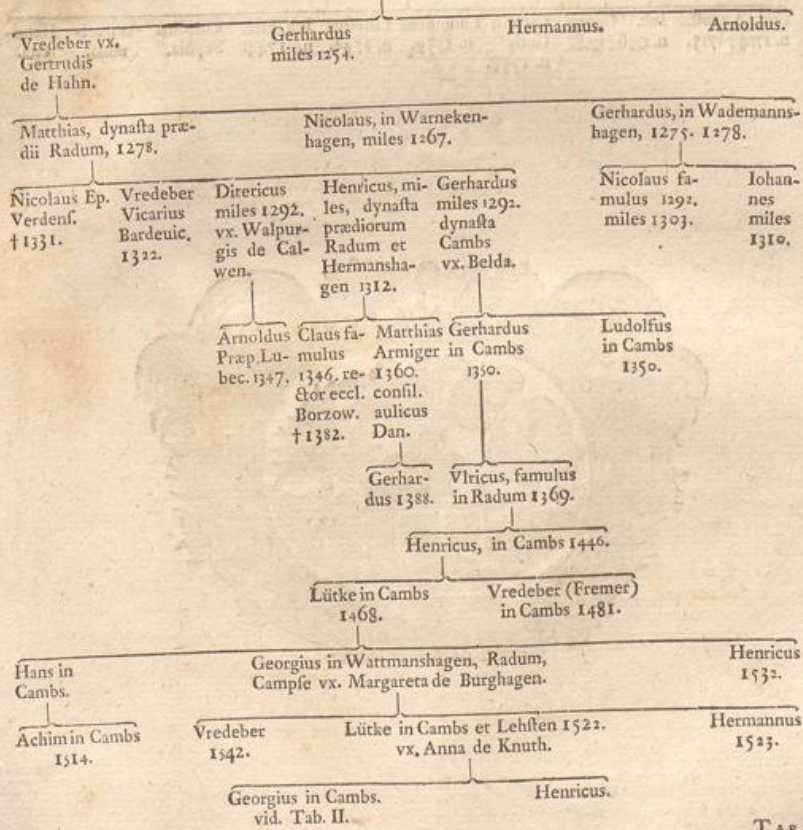 Vredeber vx.
Gertrudis
de Hahn.
Gerhardus
miles 1254.
Hermannus.
Arnoldus.
Matthias, dynaſta præ-
dii Radum, 1278.
Nicolaus, in Warneken-
hagen, miles 1267.
Gerhardus, in Wademanns-
hagen, 1275. 1278.
Nicolaus Ep.
Verdenſ.
†1331.
Vredeber
Vicarius
Bardeuic.
1322.
Direricus
miles 1292.
vx. Walpur-
gis de Cal-
wen.
Henricus, mi-
les, dynaſta
prædiorum
Radum et
Hermansha-
gen 1312.
Gerhardus
miles 1292.
dynaſta
Cambs
vx. Belda.
Nicolaus fa-
mulus 1292.
miles 1303.
Iohan-
nes
miles
1310.
Arnoldus
Præp. Lu-
bec. 1347.
Claus fa-
mulus
1346. re-
ctor eccl.
Borzow.
†1382.
Matthias
Armiger
1360.
conſil.
aulicus
Dan.
Gerhardus
in Cambs
1350.
Ludolfus
in Cambs
1350.
Gerhar-
dus 1388.
Vlricus, famulus
in Radum 1369.
Henricus, in Cambs 1446.
Lütke in Cambs
1468.
Vredeber (Fremer)
in Cambs 1481.
Hans in
Cambs.
Georgius in Wattmanshagen, Radum,
Campſe vx. Margareta de Burghagen.
Henricus
1532.
Achim in Cambs
1514.
Vredeber
1542.
Lütke in Cambs et Lehſten 1522.
vx. Anna de Knuth.
Hermannus
1523.
Georgius in Cambs.
vid. Tab. II.
Henricus.